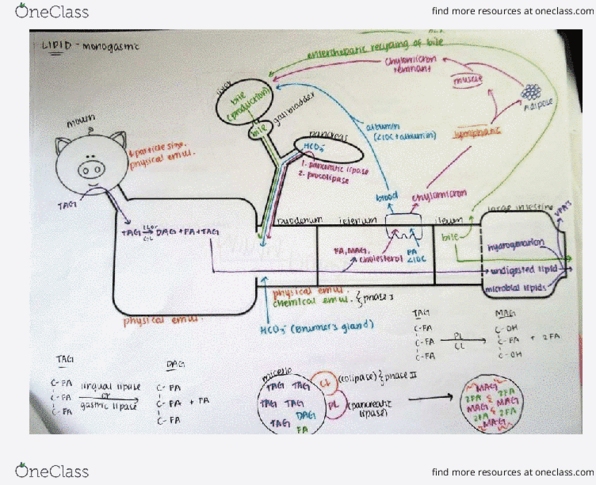 OneClass
find more resources at oneclass.com
LIPID - monogastric
enterohepatic recycling of bile
chylomicron
remnant
muscle
adipose
liver
bile
(production)
bile
gallbladder
mouth
↓ particle size
physical emul.
pancreas
HCO3-
1. pancreatic lipase
2. procolipase
albumin
(<10C + albumin)
lymphatic
TAG
blood
chylomicron
TAG → DAG + FA + TAG
duodenum
jejenum
ileum
large intestine
FA, MAG,
cholesterol
FA
<10C
bile
hydrogenation
undigested lipid
microbial lipids
physical emul.
chemical emul. } phase I
physical emul.
HCO3- (Brunner's gland)
TAG
MAG
C-FA
C-OH
C-FA
PL
CL
C-FA + 2FA
C-FA
C-OH
TAG
DAG
C-FA
lingual lipase
C-FA
C-FA
or
C-FA + FA
C-FA
gastric lipase
C-FA
micelle
TAG TAG
CL
(colipase) } phase II
TAG TAG
PL
(pancreatic
lipase)
DAG
TAG
FA
MAG
2FA 2FA
MAG MAG
2FA 2FA
MAG
OneClass
find more resources at oneclass.com